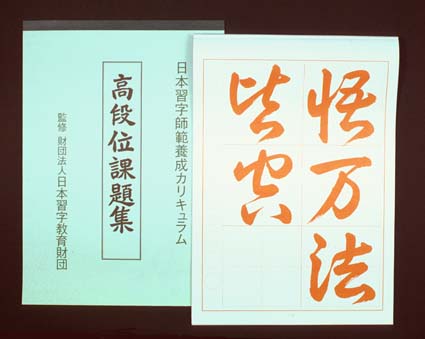 悟万法
皆空
日本習字師範養成カリキュラム
高段位課題集
監修 財団法人日本習字教育財団